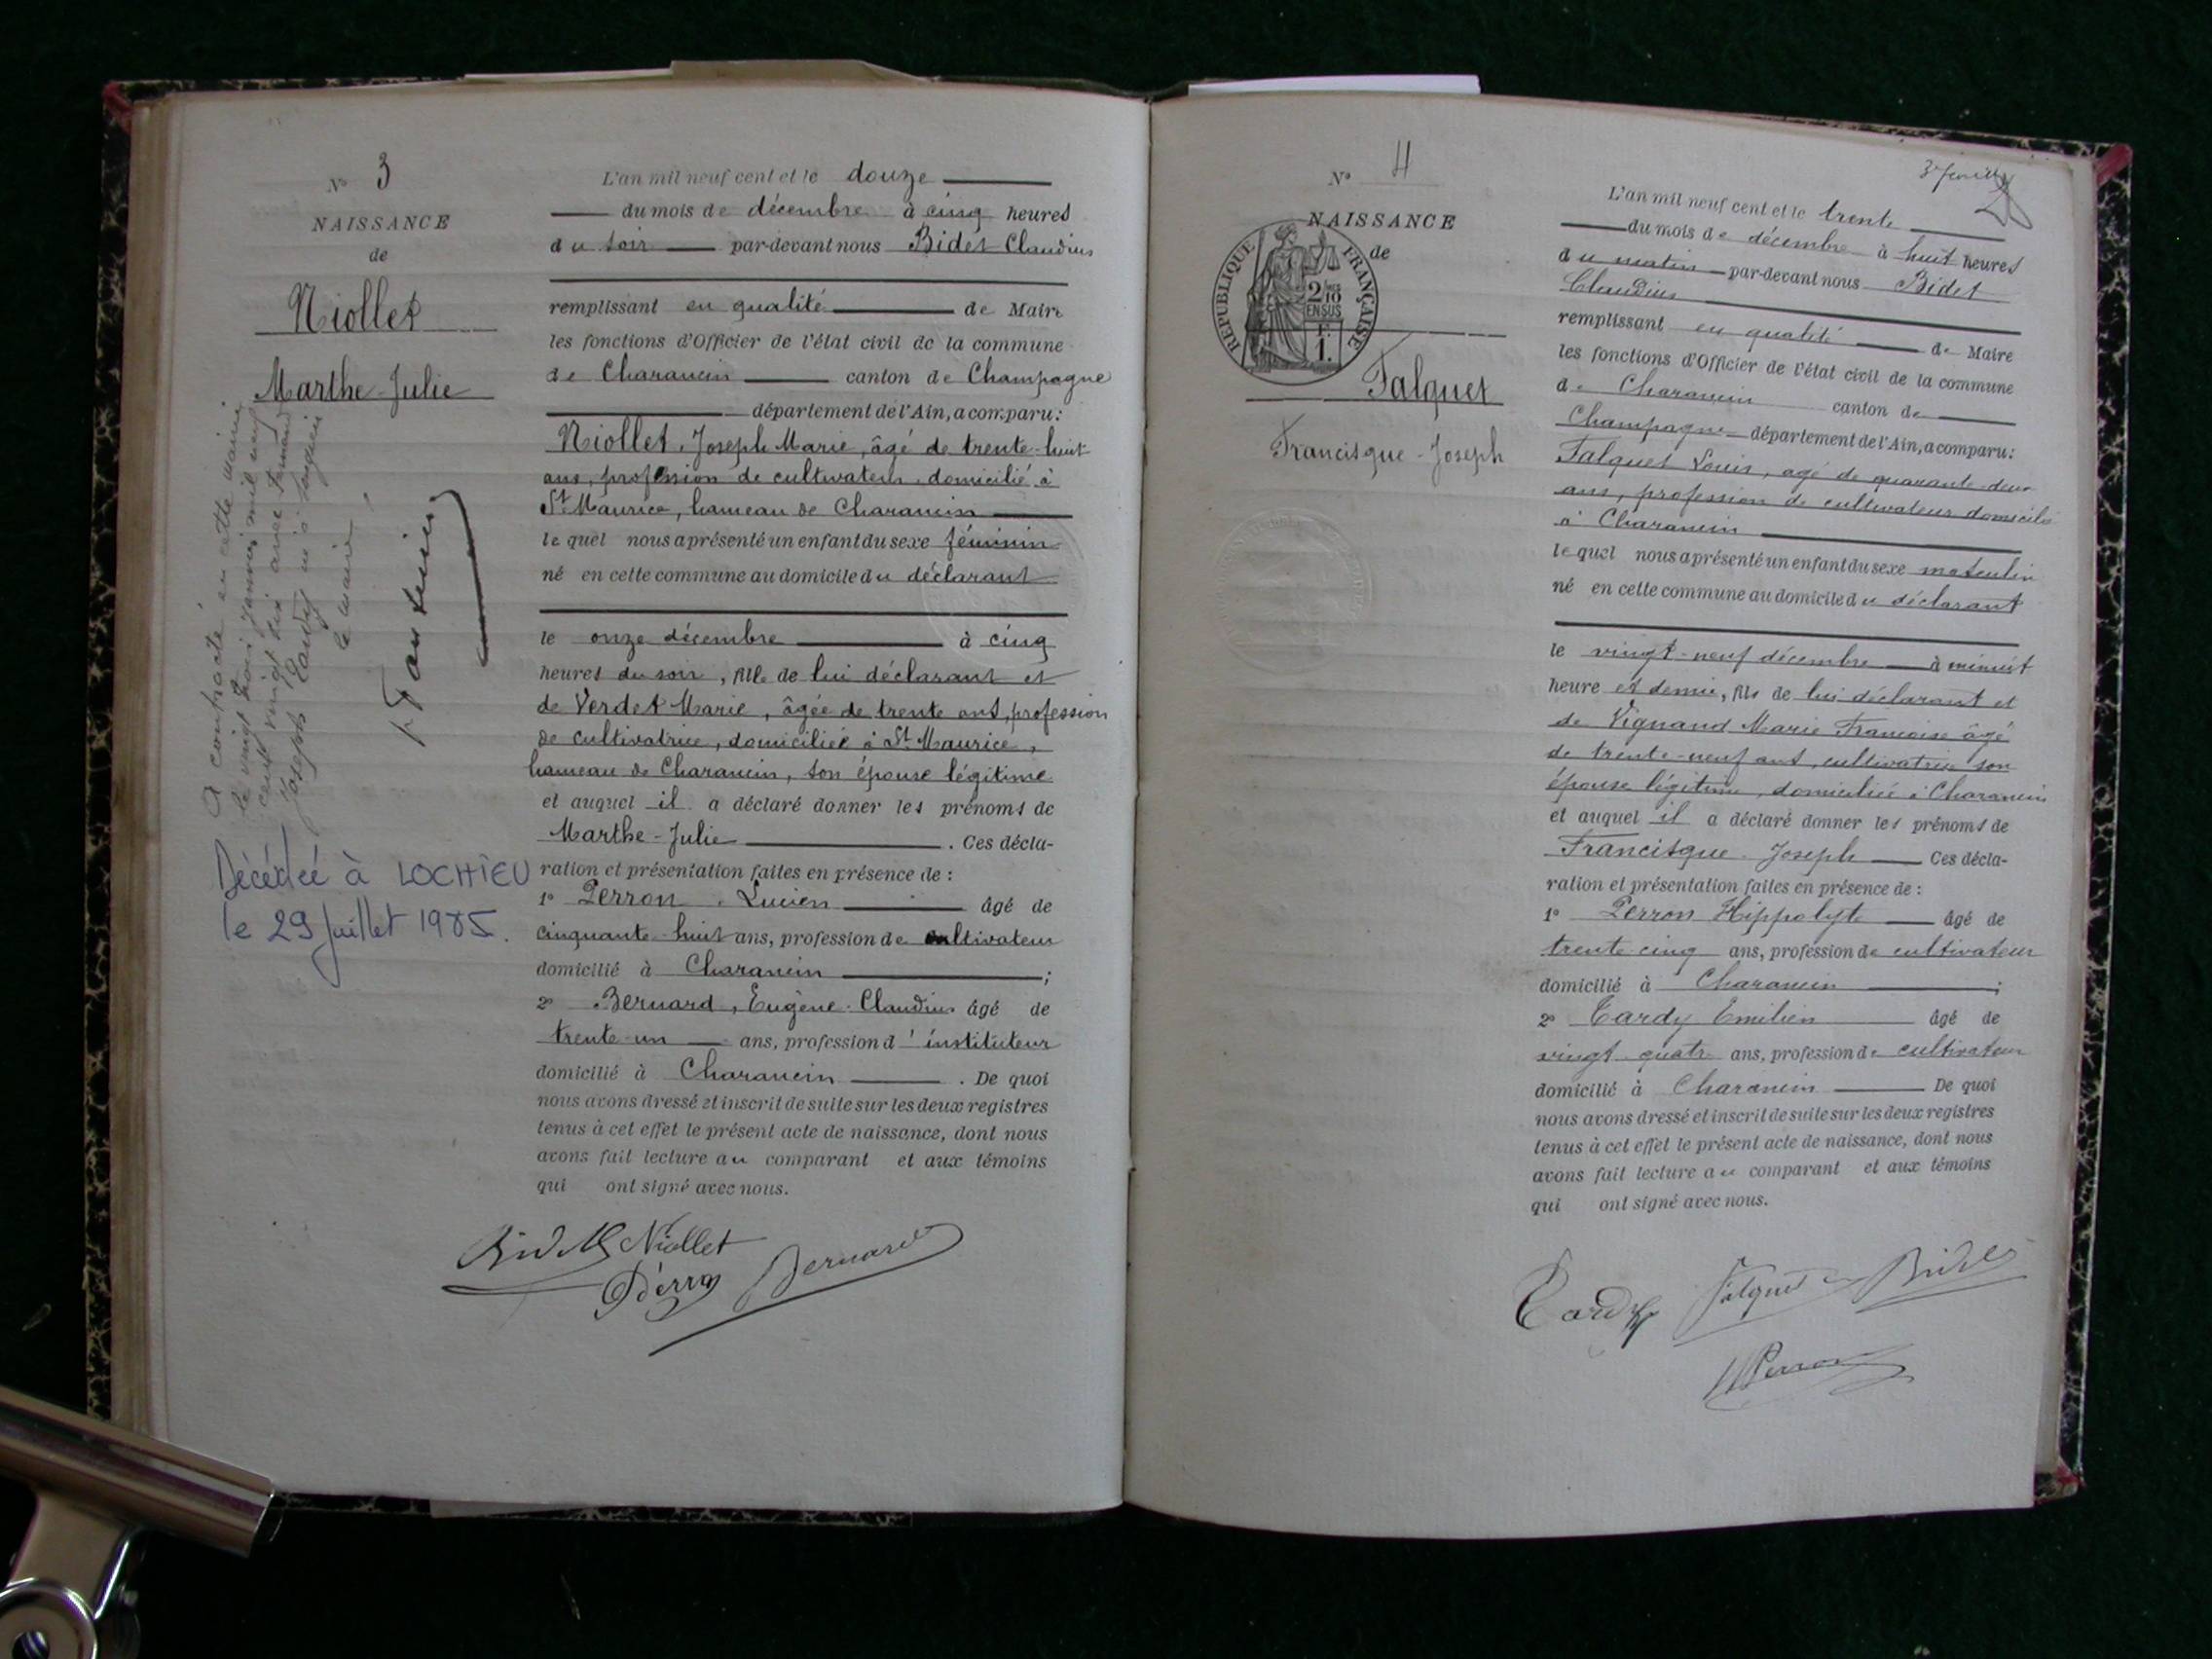 N° 3
NAISSANCE
de
Niollet
Marthe-Julie
A contracté en cette mairie
le vingt trois janvier mil neuf
cent vingt six avec Armand
Joseph Tardy né à Songieu
le maire
Décédée à LOCHIEU
le 29 Juillet 1985.
L'an mil neuf cent et le douze
du mois de décembre à cinq heures
du soir par-devant nous Bidet Claudius
remplissant en qualité de Maire
les fonctions d'Officier de l'état civil de la commune
de Charancin canton de Champagne
département de l'Ain, a comparu:
Niollet, Joseph Marie, âgé de trente-huit
ans, profession de cultivateur, domicilié à
St Maurice, hameau de Charancin
lequel nous a présenté un enfant du sexe féminin
né en cette commune au domicile du déclarant
le onze décembre à cinq
heures du soir, fille de lui déclarant et
de Verdet Marie, âgée de trente ans, profession
de cultivatrice, domiciliée à St Maurice,
hameau de Charancin, son épouse légitime
et auquel il a déclaré donner les prénoms de
Marthe-Julie. Ces décla-
ration et présentation faites en présence de:
1° Perron, Lucien âgé de
cinquante-huit ans, profession de cultivateur
domicilié à Charancin;
2° Bernard, Eugène-Claudius âgé de
trente-un ans, profession d'instituteur
domicilié à Charancin. De quoi
nous avons dressé et inscrit de suite sur les deux registres
tenus à cet effet le présent acte de naissance, dont nous
avons fait lecture au comparant et aux témoins
qui ont signé avec nous.
Bidet Niollet
Perron Bernard
N° 4
NAISSANCE
de
RÉPUBLIQUE FRANÇAISE
2/10
EN SUS
F.
1.
Falquet
Francisque-Joseph
L'an mil neuf cent et le trente
du mois de décembre à huit heures
du matin par-devant nous Bidet
Claudius
remplissant en qualité de Maire
les fonctions d'Officier de l'état civil de la commune
de Charancin canton de
Champagne département de l'Ain, a comparu:
Falquet Louis, agé de quarante-deux
ans, profession de cultivateur domicilié
à Charancin
lequel nous a présenté un enfant du sexe masculin
né en cette commune au domicile du déclarant
le vingt-neuf décembre à minuit
heure et demie, fils de lui déclarant et
de Vignand Marie Françoise âgé
de trente-neuf ans, cultivatrice son
épouse légitime, domiciliée à Charancin
et auquel il a déclaré donner les prénoms de
Francisque-Joseph Ces décla-
ration et présentation faites en présence de:
1° Perron Hippolyte âgé de
trente cinq ans, profession de cultivateur
domicilié à Charancin;
2° Tardy Emilien âgé de
vingt-quatre ans, profession de cultivateur
domicilié à Charancin De quoi
nous avons dressé et inscrit de suite sur les deux registres
tenus à cet effet le présent acte de naissance, dont nous
avons fait lecture au comparant et aux témoins
qui ont signé avec nous.
Tardy Falquet Bidet
Perron